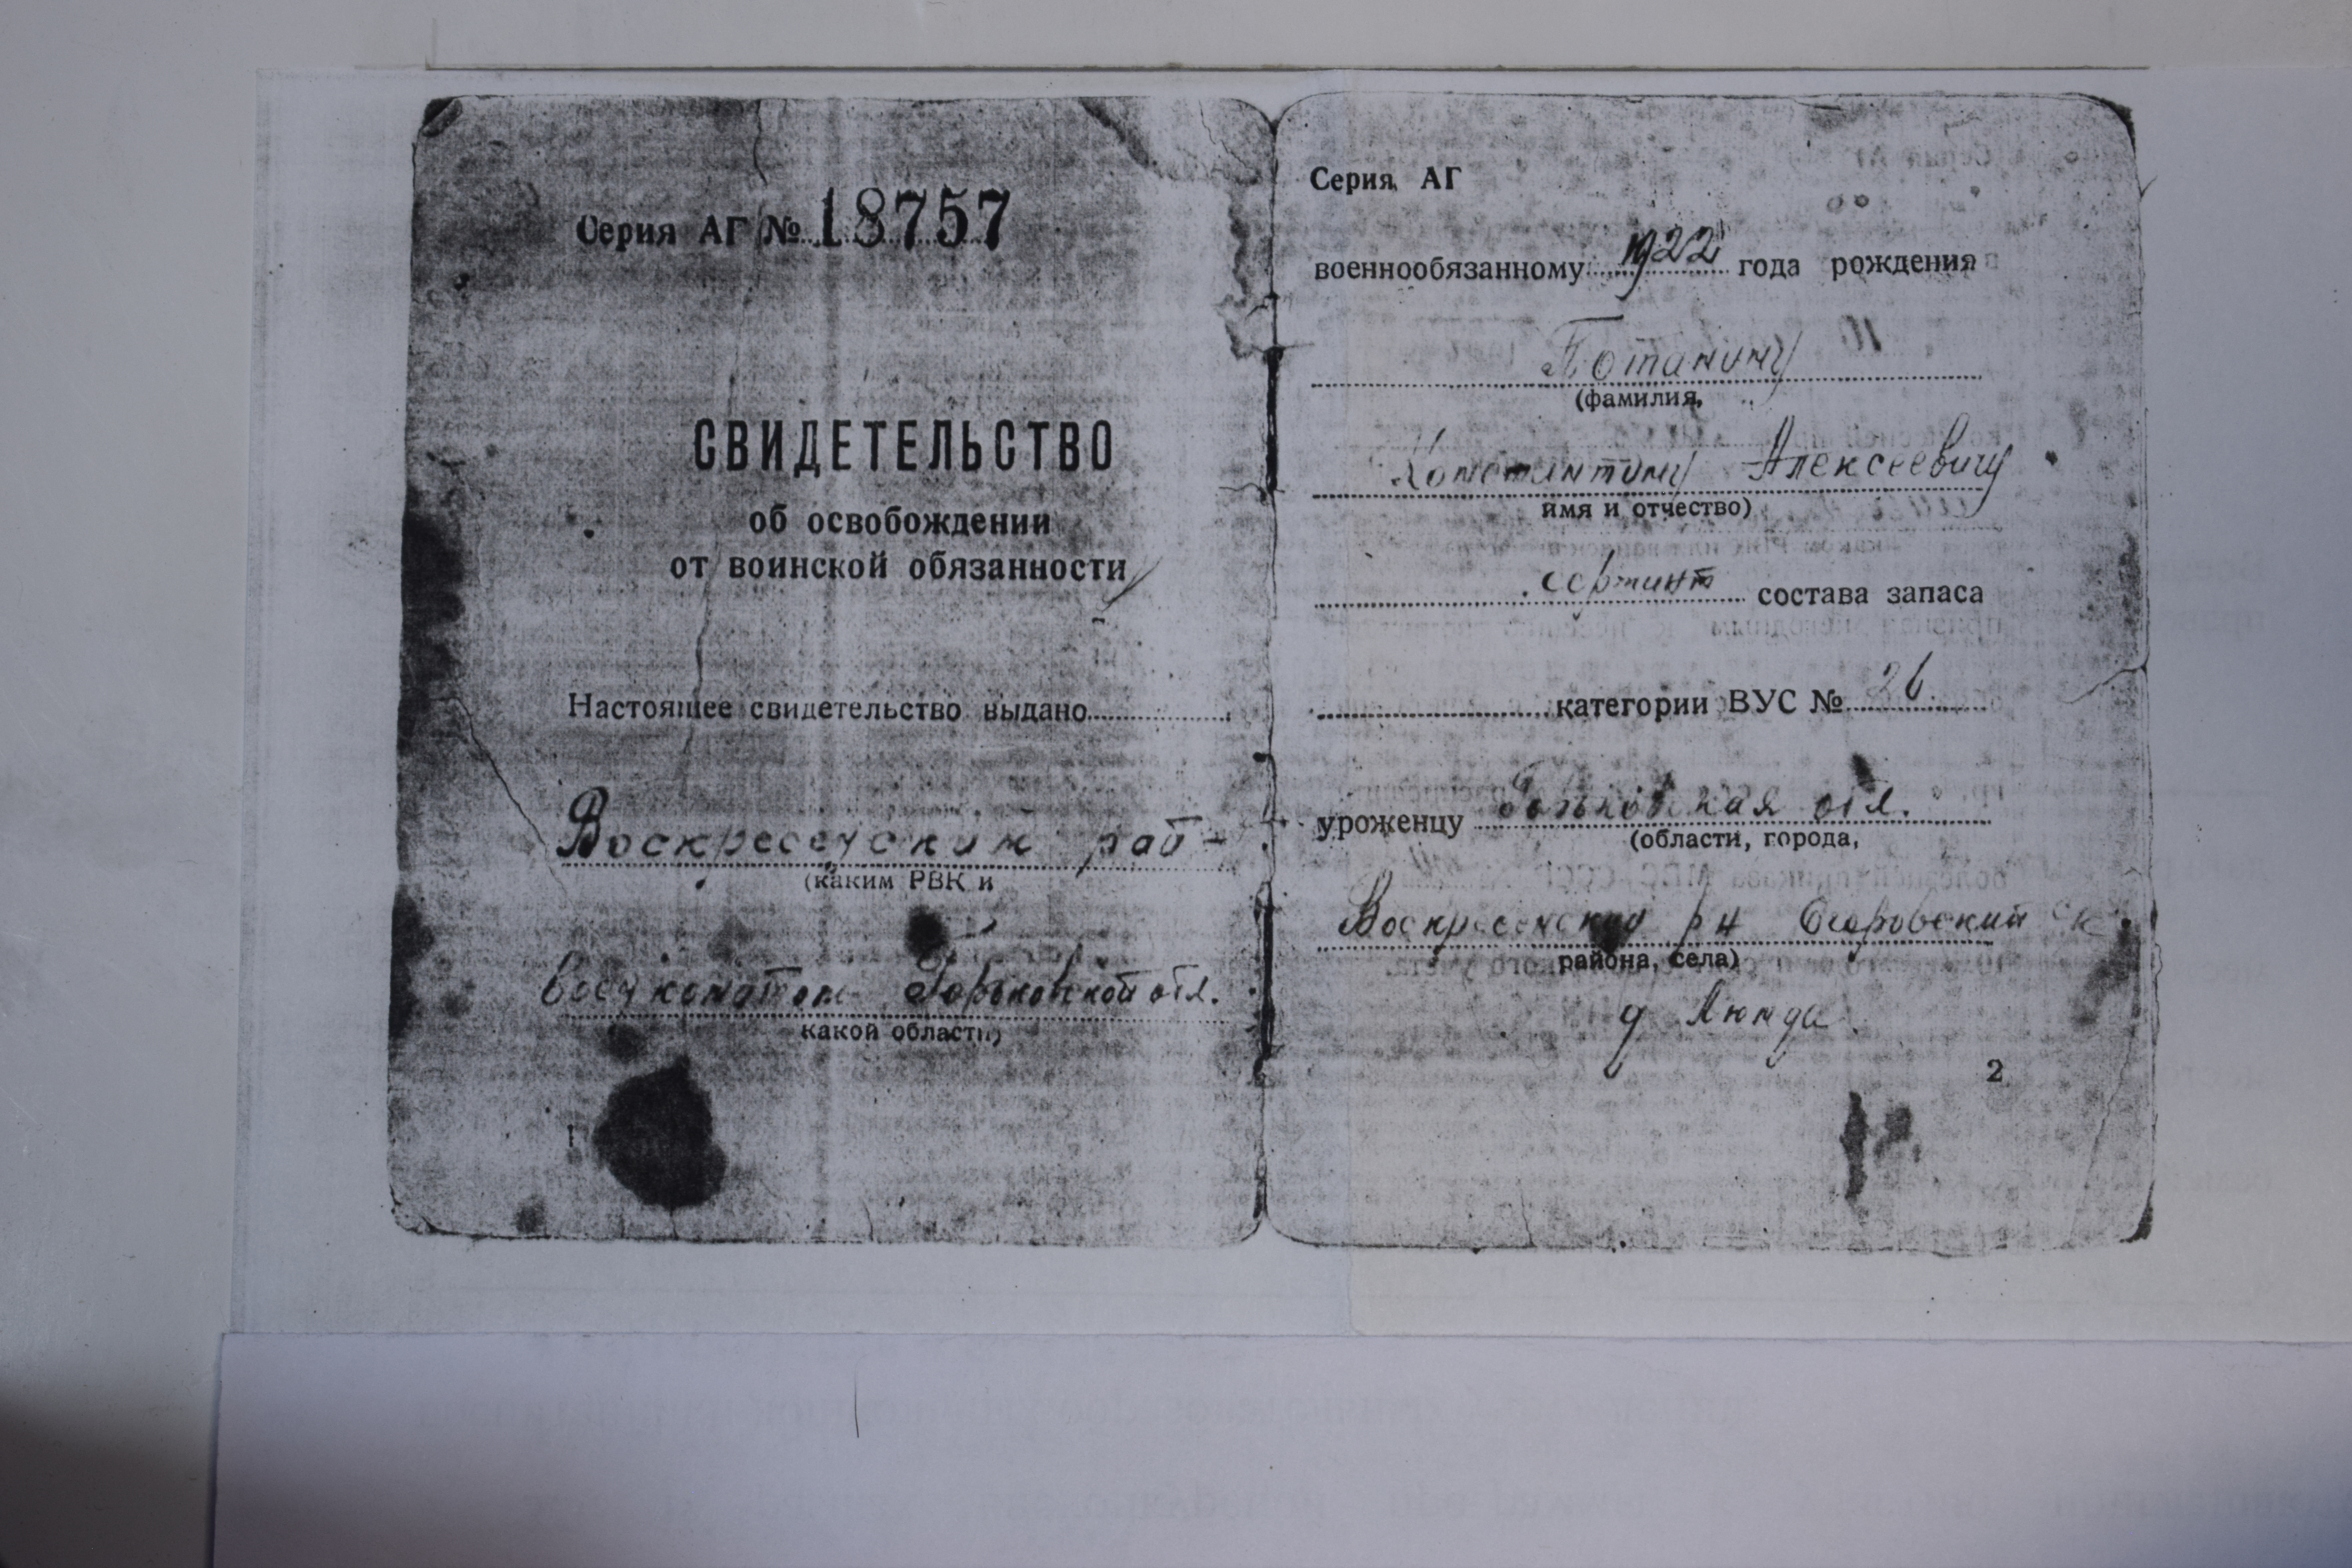 Серия АГ № 18757
СВИДЕТЕЛЬСТВО
об освобождении
от воинской обязанности
Настоящее свидетельство выдано
Воскресенским рай-
(каким РВК и
военкоматом Горьковской обл.
какой области)
1
Серия АГ
военнообязанному 1922 года рождения
Потанину
(фамилия,
Константину Алексеевичу
имя и отчество)
сержант состава запаса
категории ВУС № 26
уроженцу Горьковская обл.
(области, города,
Воскресенский р н Егоровский с
района, села)
д
2